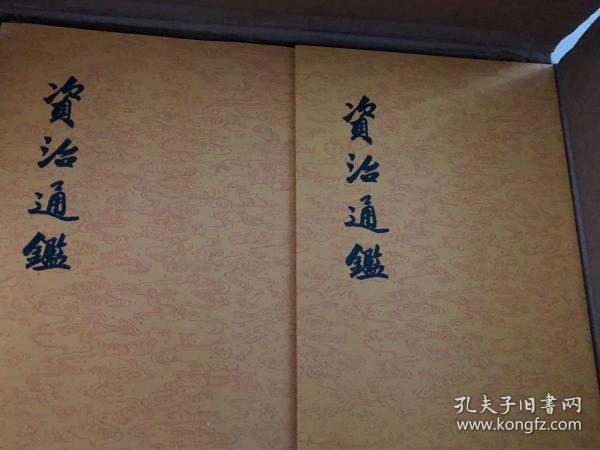 資治通鑑
資治通鑑
孔夫子旧書网
www.kongfz.com